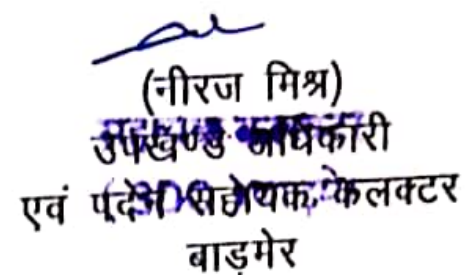 (नीरज मिश्र)
उपखण्ड अधिकारी
एवं पदेन सहायक कलक्टर
बाड़मेर